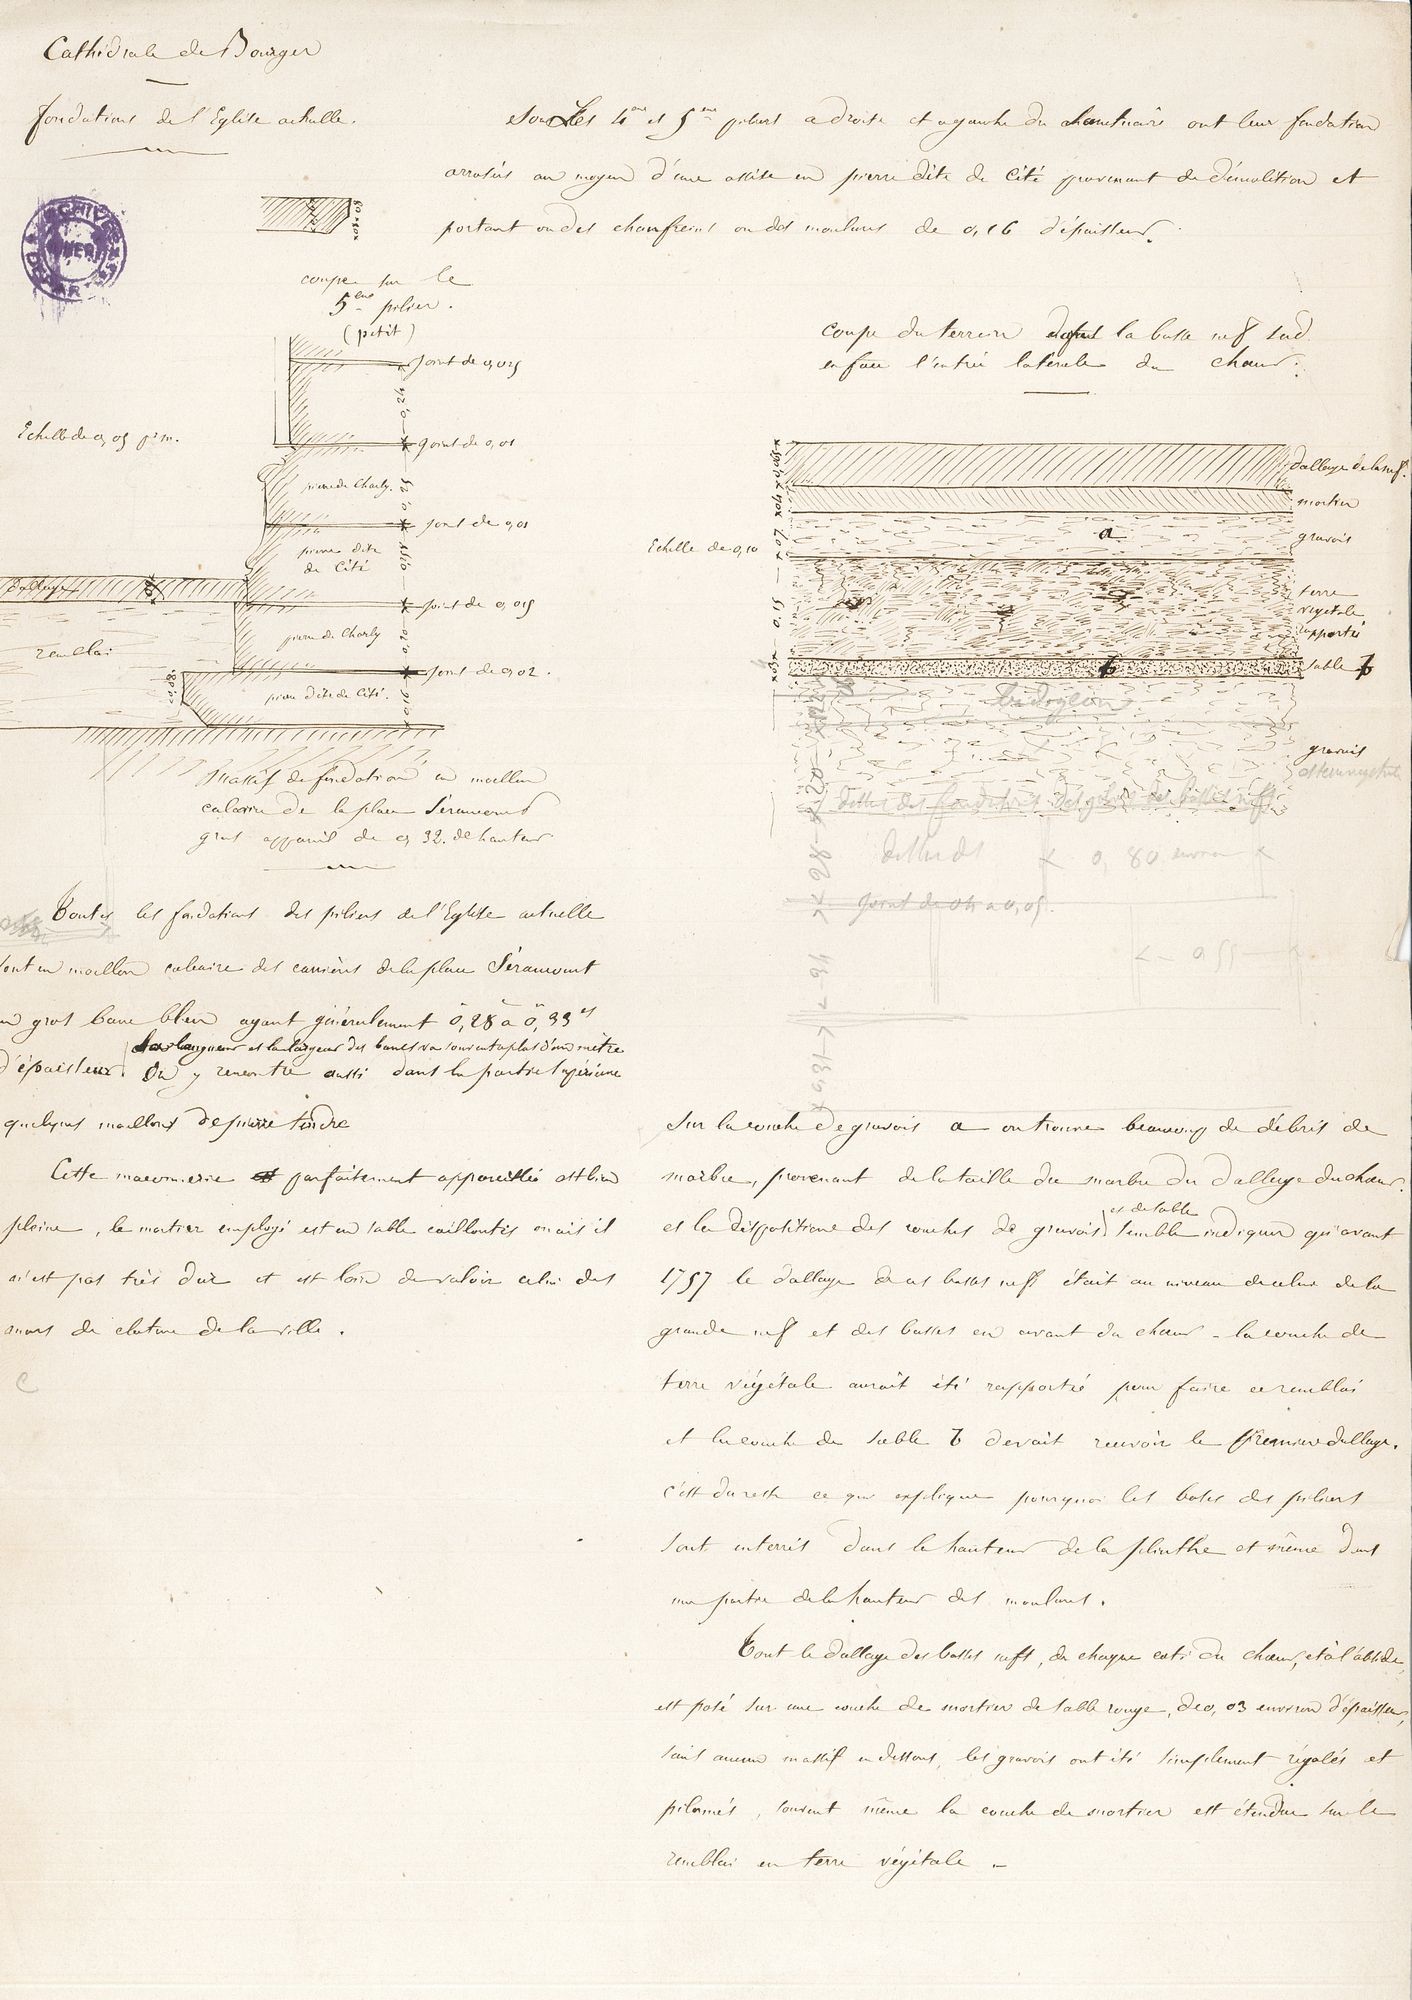 Cathédrale de Bourges
fondations de l'Eglise actuelle.
Les 4eme et 5eme piliers a droite et a gauche du sanctuaire ont leur fondation
arrasées au moyen d'une assise en pierre dite de Cité provenant de démolition et
portant ou des chanfreins ou des moulures de 0,16 d'épaisseur.
coupe sur le
5eme pilier.
(petit)
joint de 0,015
Echelle de 0,05 p. m.
joint de 0,01
pierre de Charly.
joint de 0,01
pierre dite
de Cité
dallage
joint de 0,015
pierre de Charly
remblai
joint de 0,02.
pierre dite de Cité.
Massif de fondation en moellon
calcaire de la place Séraucourt
gros appareil de 0,32 de hauteur
coupe du terrain dans la basse nef sud
en face l'entrée latérale du choeur.
dallage de la nef.
mortier
a
gravois
Echelle de 0,10
terre
végétale
rapportée
b
sable b
badigeon
gravois
dessus des fondations des piliers des basses nefs
dessus des
0,80 environ
joint de 04 a 0,05.
0,55
Toutes les fondations des piliers de l'Eglise actuelle
sont en moellon calcaire des carrières de la place Séraucourt
en gros banc bleu ayant généralement 0,28 a 0,33es
la longueur et la largeur des bancs va souvent a plus d'un mètre
d'épaisseur. On y rencontre aussi dans la partie supérieure
quelques moellons de pierre tendre
Cette maconnerie parfaitement appareillée est bien
pleine, le mortier employé est en sable caillouteis mais il
n'est pas très dur et est loin de valoir celui des
murs de cloture de la ville.
Sur la couche de gravois a on trouve beaucoup de débris de
marbre, provenant de la taille du marbre du dallage du choeur.
et de sable
et la dispositions des couches de gravois semble indiquer qu'avant
1757 le dallage de ces basses nefs était au niveau de celui de la
grande nef et des basses en avant du choeur - la couche de
terre végétale aurait été rapportée pour faire ce remblai
et la couche de sable b devait recevoir le premier dallage.
c'est du reste ce qui explique pourquoi les bases des piliers
sont enterrés dans la hauteur de la plinthe et même dans
une partie de la hauteur des moulures.
Tout le dallage des basses nefs, de chaque coté du choeur, et à l'abside,
est posé sur une couche de mortier de sable rouge, de 0,03 environ d'épaisseur,
sans aucun massif en dessous, les gravois ont été simplement régalés et
pilonnés, souvent même la couche de mortier est étendue sur le
remblai en terre végétale -